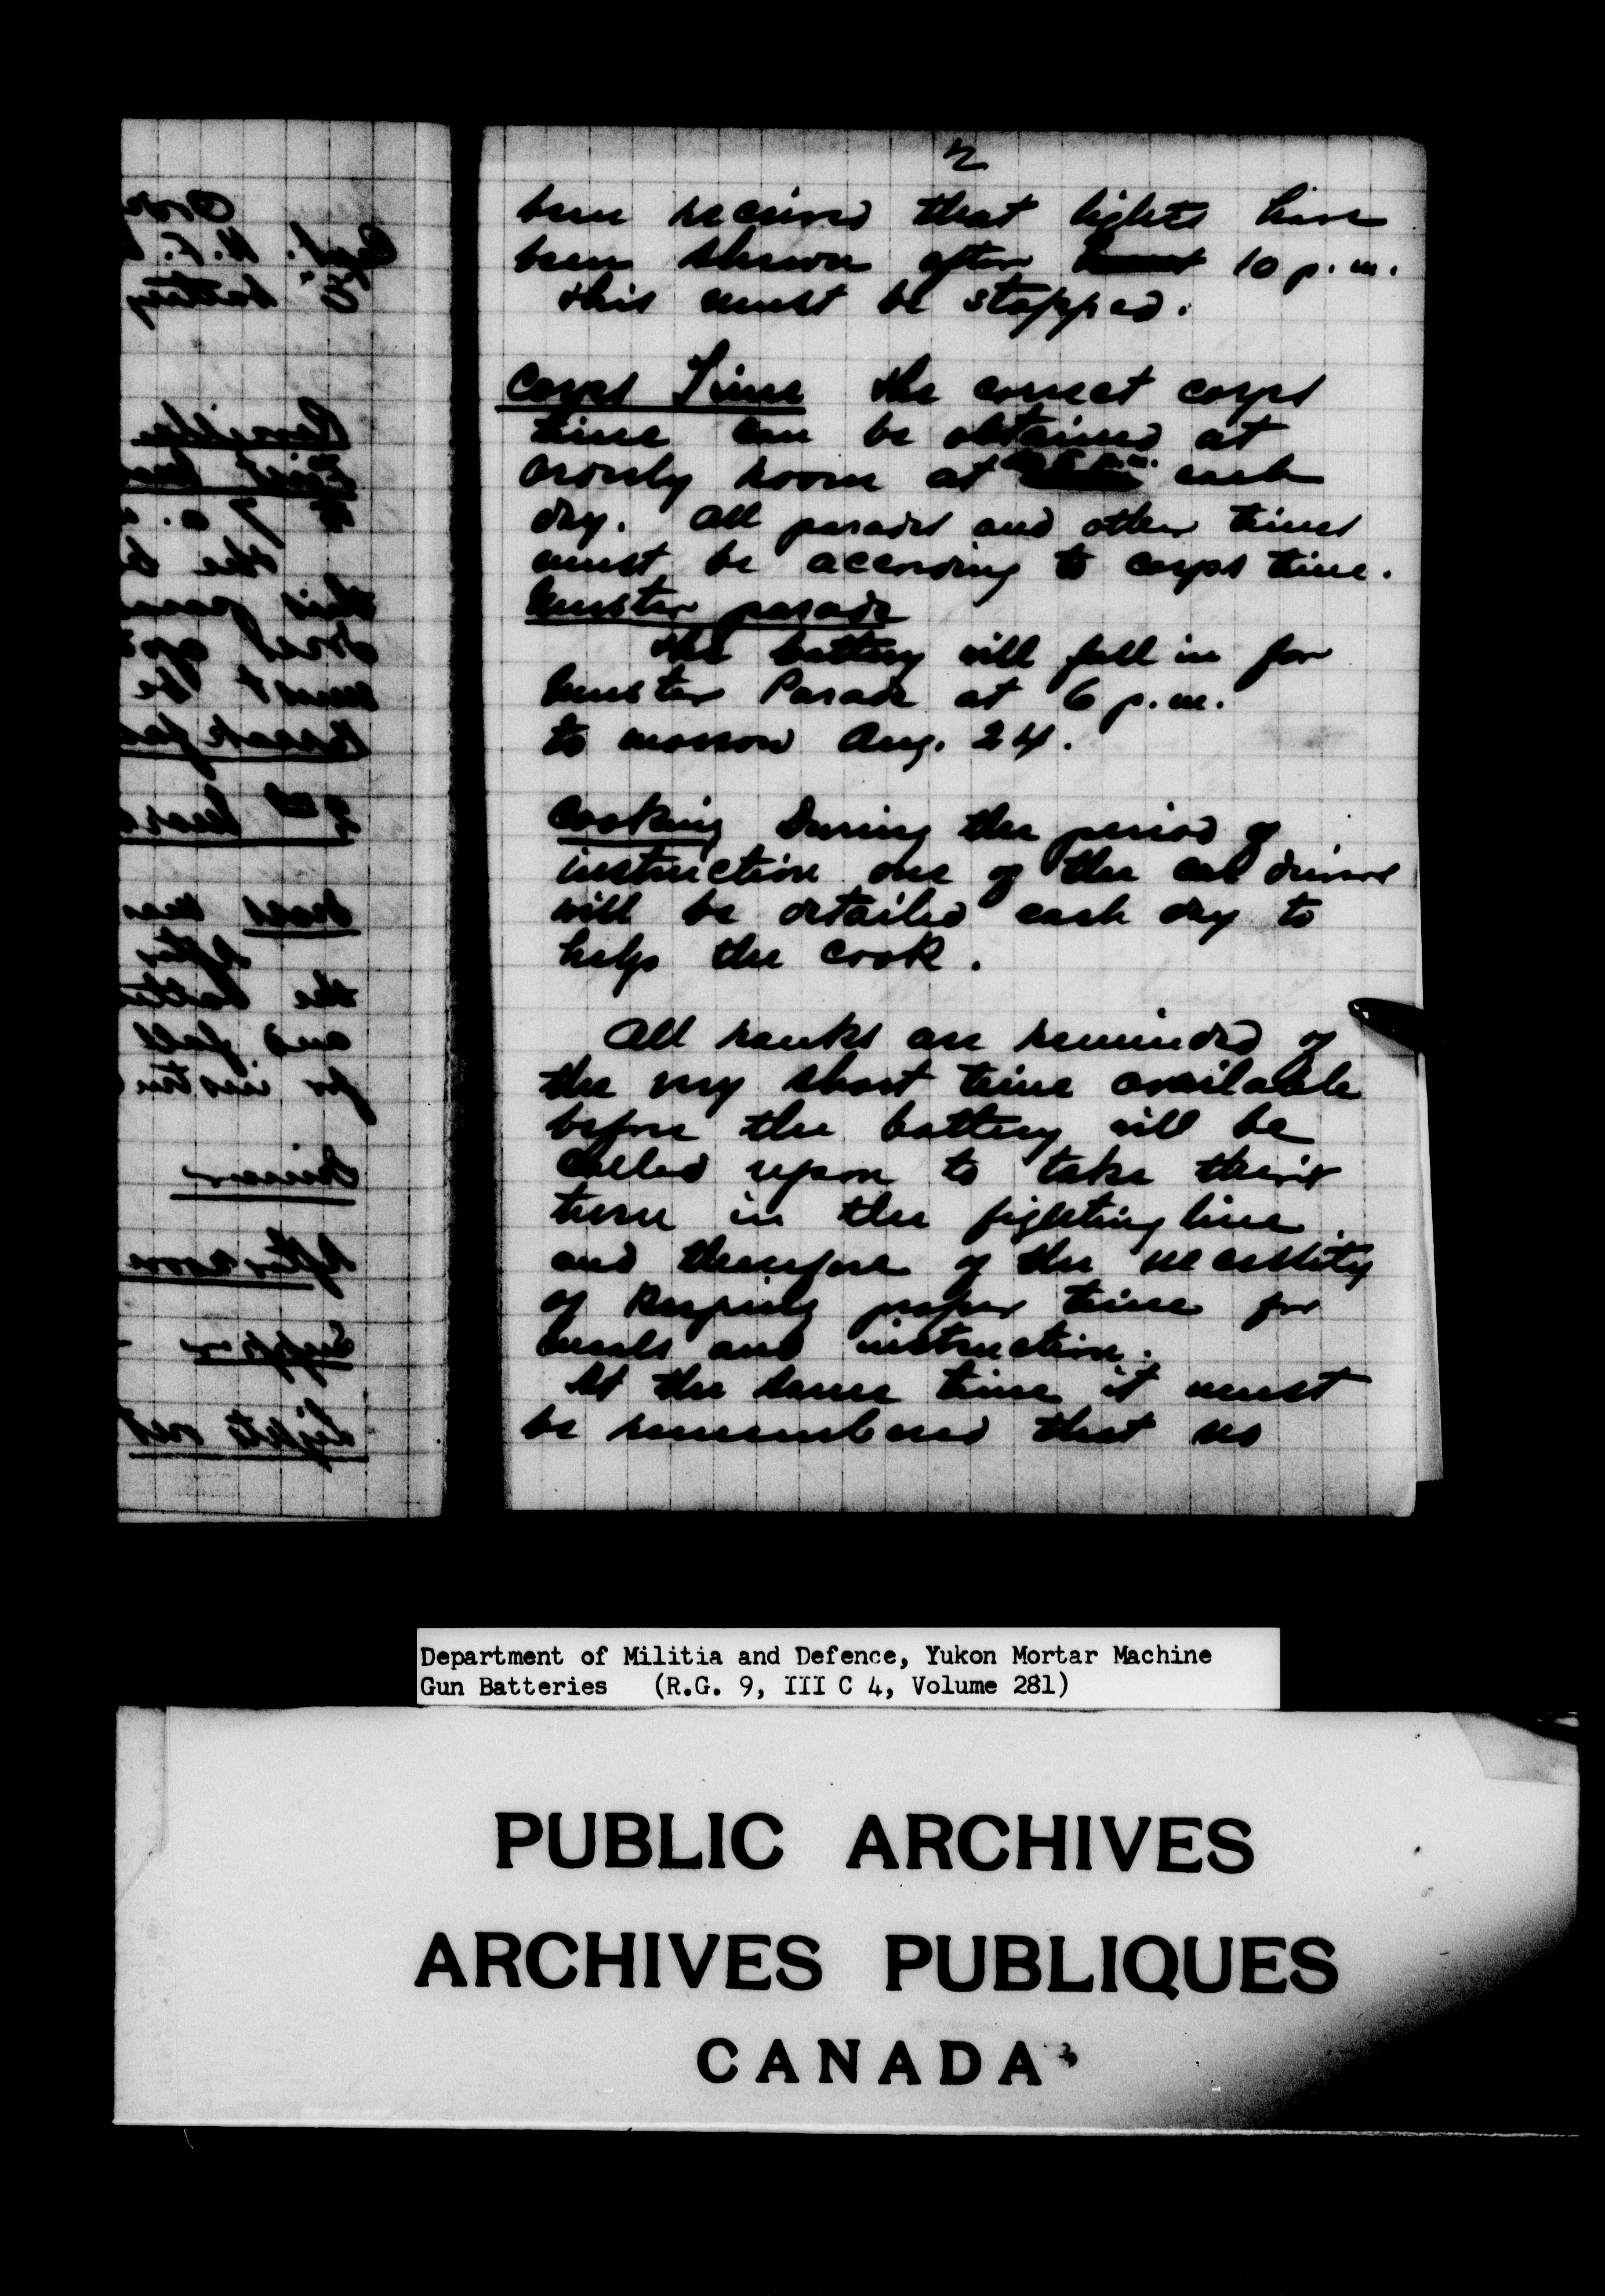 2
been received that lights have
been shown after 10 p.m.
this must be stopped.
Corps Time the correct corps
time can be obtained at
orderly room at each
day. All parades and other times
must be according to corps time.
Muster parade
The battery will fall in for
Muster Parade at 6 p.m.
to morrow Aug. 24.
Cooking During the period of
instruction one of the car drivers
will be detailed each day to
help the cook.
All ranks are reminded of
the very short time available
before the battery will be
called upon to take their
turn in the fighting line
and therefore of the necessity
of keeping proper time for
meals and instruction.
At the same time it must
be remembered that no
Department of Militia and Defence, Yukon Mortar Machine
Gun Batteries (R.G. 9, III C 4, Volume 281)
PUBLIC ARCHIVES
ARCHIVES PUBLIQUES
CANADA